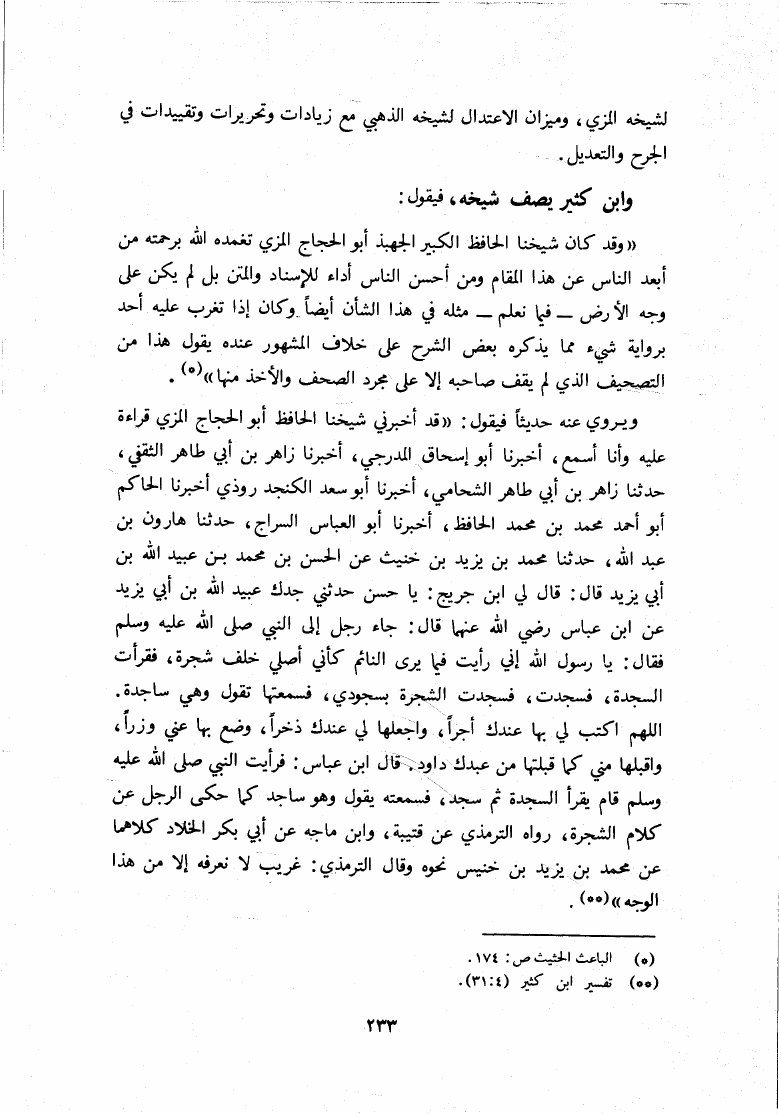 لشيخه المزي، وميزان الاعتدال لشيخه الذهبي مع زيادات وتحريرات وتقييدات في
الجرح والتعديل.
وابن كثير يصف شيخه، فيقول:
«وقد كان شيخنا الحافظ الكبير الجهبذ أبو الحجاج المزي تغمده الله برحمته من
أبعد الناس عن هذا المقام ومن أحسن الناس أداء للإسناد والمتن بل لم يكن على
وجه الأرض ــ فيما نعلم ــ مثله في هذا الشأن أيضاً وكان إذا تغرب عليه أحد
برواية شيء مما يذكره بعض الشرح على خلاف المشهور عنده يقول هذا من
التصحيف الذي لم يقف صاحبه إلا على مجرد الصحف والأخذ منها»(*).
ويروي عنه حديثاً فيقول: «قد أخبرني شيخنا الحافظ أبو الحجاج المزي قراءة
عليه وأنا أسمع، أخبرنا أبو إسحاق المدرجي، أخبرنا زاهر بن أبي طاهر الثقفي،
حدثنا زاهر بن أبي طاهر الشحامي، أخبرنا أبو سعد الكنجد روذي أخبرنا الحاكم
أبو أحمد محمد بن محمد الحافظ، أخبرنا أبو العباس السراج، حدثنا هارون بن
عبد الله، حدثنا محمد بن يزيد بن خنيث عن الحسن بن محمد بن عبيد الله بن
أبي يزيد قال: قال لي ابن جريج: يا حسن حدثني جدك عبيد الله بن أبي يزيد
عن ابن عباس رضي الله عنهما قال: جاء رجل إلى النبي صلى الله عليه وسلم
فقال: يا رسول الله إني رأيت فيما يرى النائم كأني أصلي خلف شجرة، فقرأت
السجدة، فسجدت، فسجدت الشجرة بسجودي، فسمعتها تقول وهي ساجدة.
اللهم اكتب لي بها عندك أجراً، واجعلها لي عندك ذخراً، وضع بها عني وزراً،
واقبلها مني كما قبلتها من عبدك داود. قال ابن عباس: فرأيت النبي صلى الله عليه
وسلم قام يقرأ السجدة ثم سجد، فسمعته يقول وهو ساجد كما حكى الرجل عن
كلام الشجرة، رواه الترمذي عن قتيبة، وابن ماجه عن أبي بكر الخلاد كلاهما
عن محمد بن يزيد بن خنيس نحوه وقال الترمذي: غريب لا نعرفه إلا من هذا
الوجه»(**).
(*) الباعث الحثيث ص: ١٧٤.
(**) تفسير ابن كثير (٣١:٤).
٢٣٣